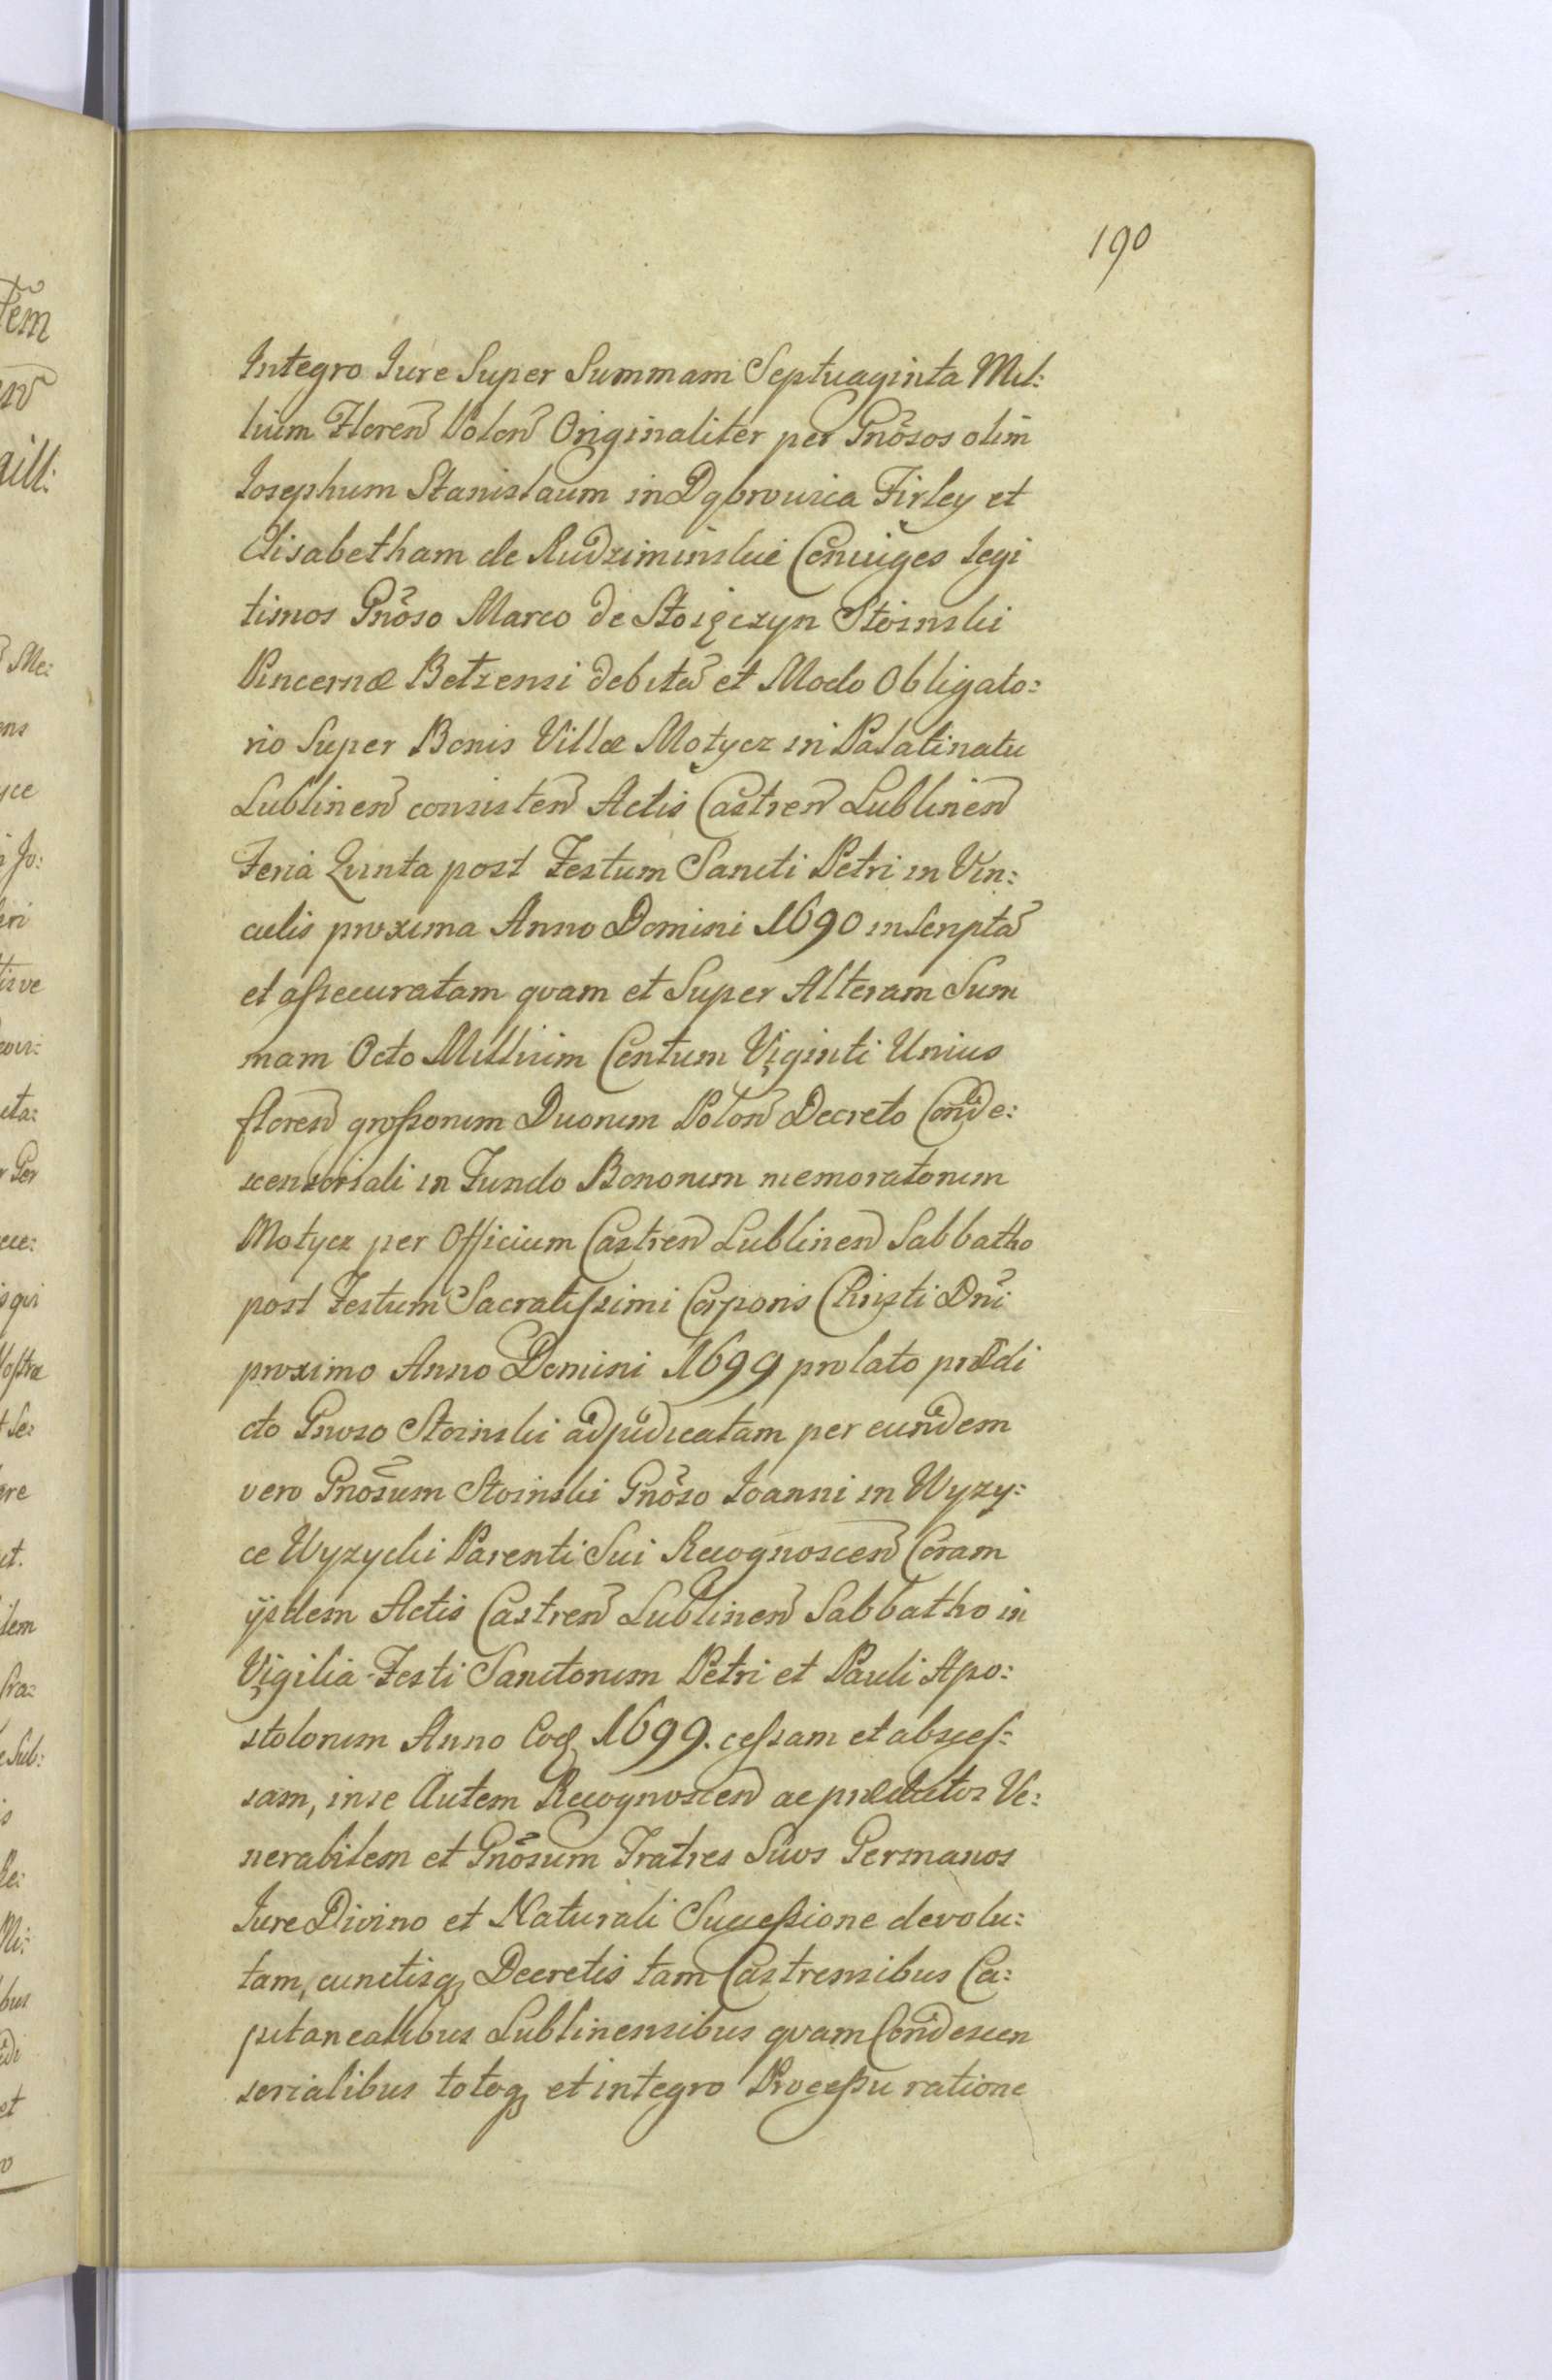 190
Integro Iure Super Summam Septuaginta Mil:
lium Floren̄ Polon̄ Originaliter per Gnōsos olim
Iosephum Stanislaum in Dąbrowica Firley et
Elisabetham de Rudziminskie Coniuges legi
timos Gnōso Marco de Stoięczyn Stoinski
Pincernæ Betzensi debitā et Modo Obligato:
rio Super Bonis Villæ Motycz in Palatinatu
Lublinen̄ consisten̄ Actis Castren̄ Lublinen̄
Feria Qvinta post Festum Sancti Petri in Vin:
culis proxima Anno Domini 1690 inscriptā
et aſsecuratam qvam et Super Alteram Sum
mam Octo Millium Centum Viginti Unius
floren̄ groſsorum Duorum Polon̄ Decreto Conde:
scensoriali in Fundo Bonorum memoratorum
Motycz per Officium Castren̄ Lublinen̄ Sabbatho
post Festum Sacratiſsimi Corporis Christi Dn̄i
proximo Anno Domini 1699 prolato prædi
cto Gnoso Stoinski adjudicatam per eundem
vero Gnōsum Stoinski Gnōso Ioanni in Wyzy:
ce Wyzycki Parenti Sui Recognoscen̄ Coram
ijsdem Actis Castren̄ Lublinen̄ Sabbatho in
Vigilia Festi Sanctorum Petri et Pauli Apo:
stolorum Anno Eoq 1699. ceſsam et absceſ:
sam, in se Autem Recognoscen̄ ac prædictos Ve:
nerabilem et Gnōsum Fratres Suos Germanos
Iure Divino et Naturali Succeſsione devolu:
tam, cunctisq Decretis tam Castrensibus Ca:
pitanealibus Lublinensibus qvam Condescen
sorialibus totoq et integro Proceſsu ratione